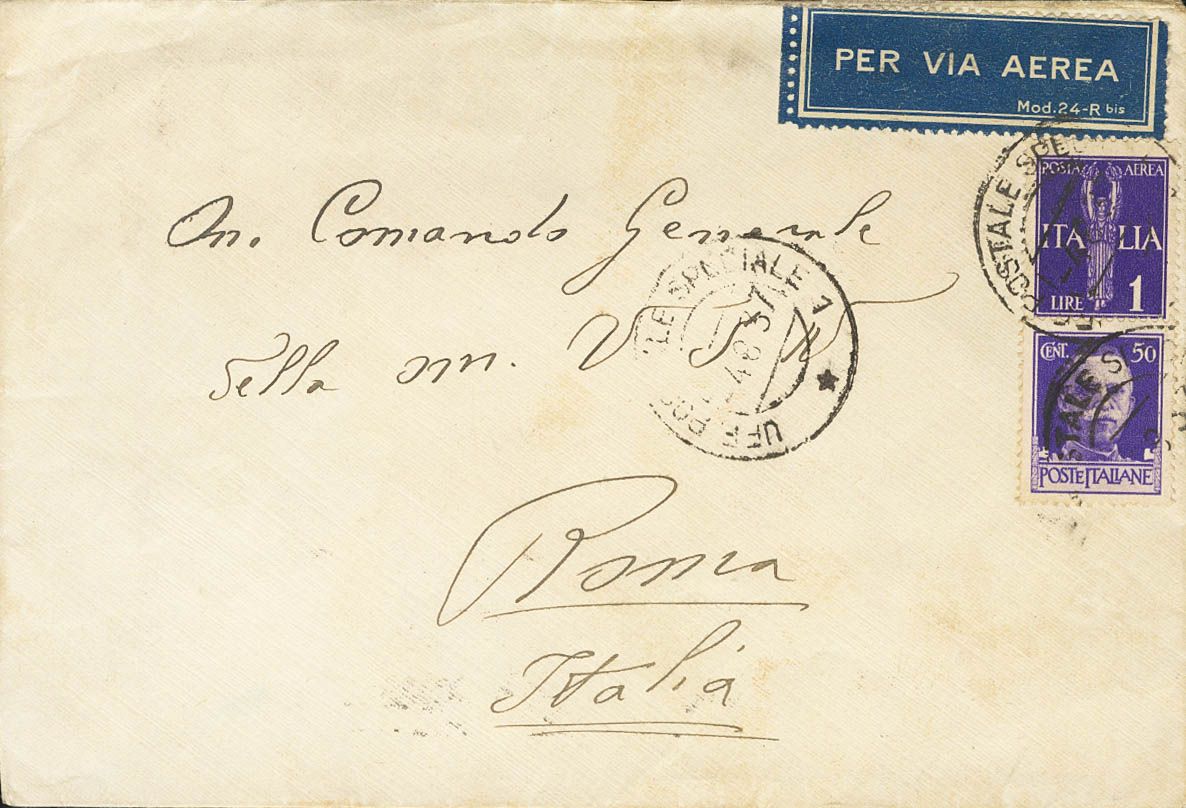 PER VIA AEREA
Mod.24-R bis
POSTA AEREA
ITALIA
LIRE 1
CENT. 50
POSTE ITALIANE
On. Comando Generale
della M. V S N
Roma
Italia
UFF. POSTALE SPECIALE 1
4 8 37
POSTALE SPE
STALE S